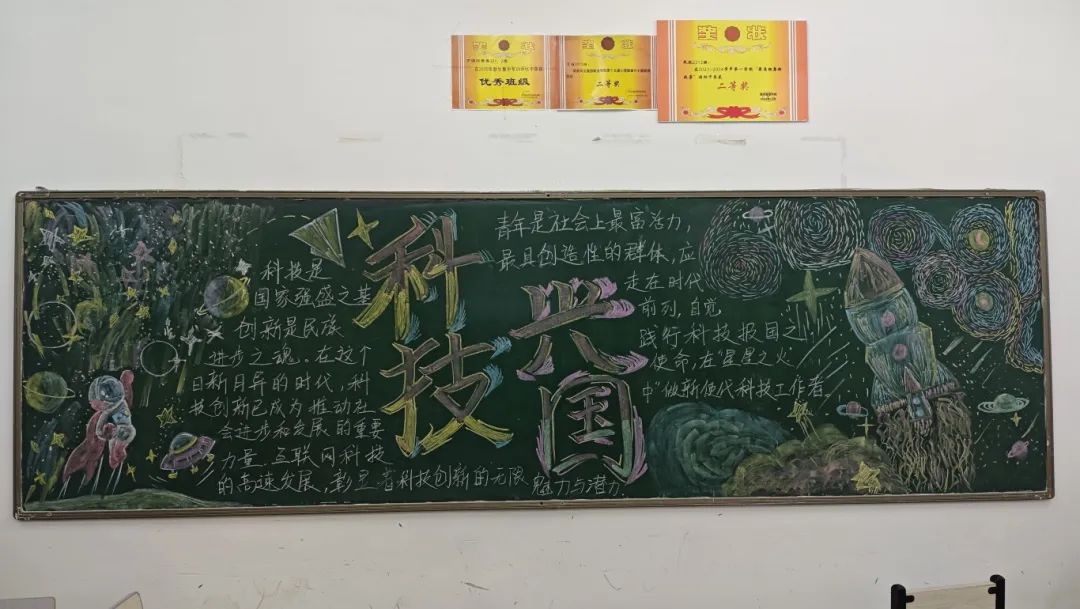 奖状
优秀班级
奖状
二等奖
奖状
二等奖
科技兴国
科技是
国家强盛之基
创新是民族
进步之魂。在这个
日新月异的时代,科
技创新已成为推动社
会进步和发展的重要
力量,互联网科技
的高速发展,彰显着科技创新的无限魅力与潜力.
青年是社会上最富活力,
最具创造性的群体,应
走在时代
前列,自觉
践行科技报国之
使命,在"星星之火"
中做新使代科技工作者。